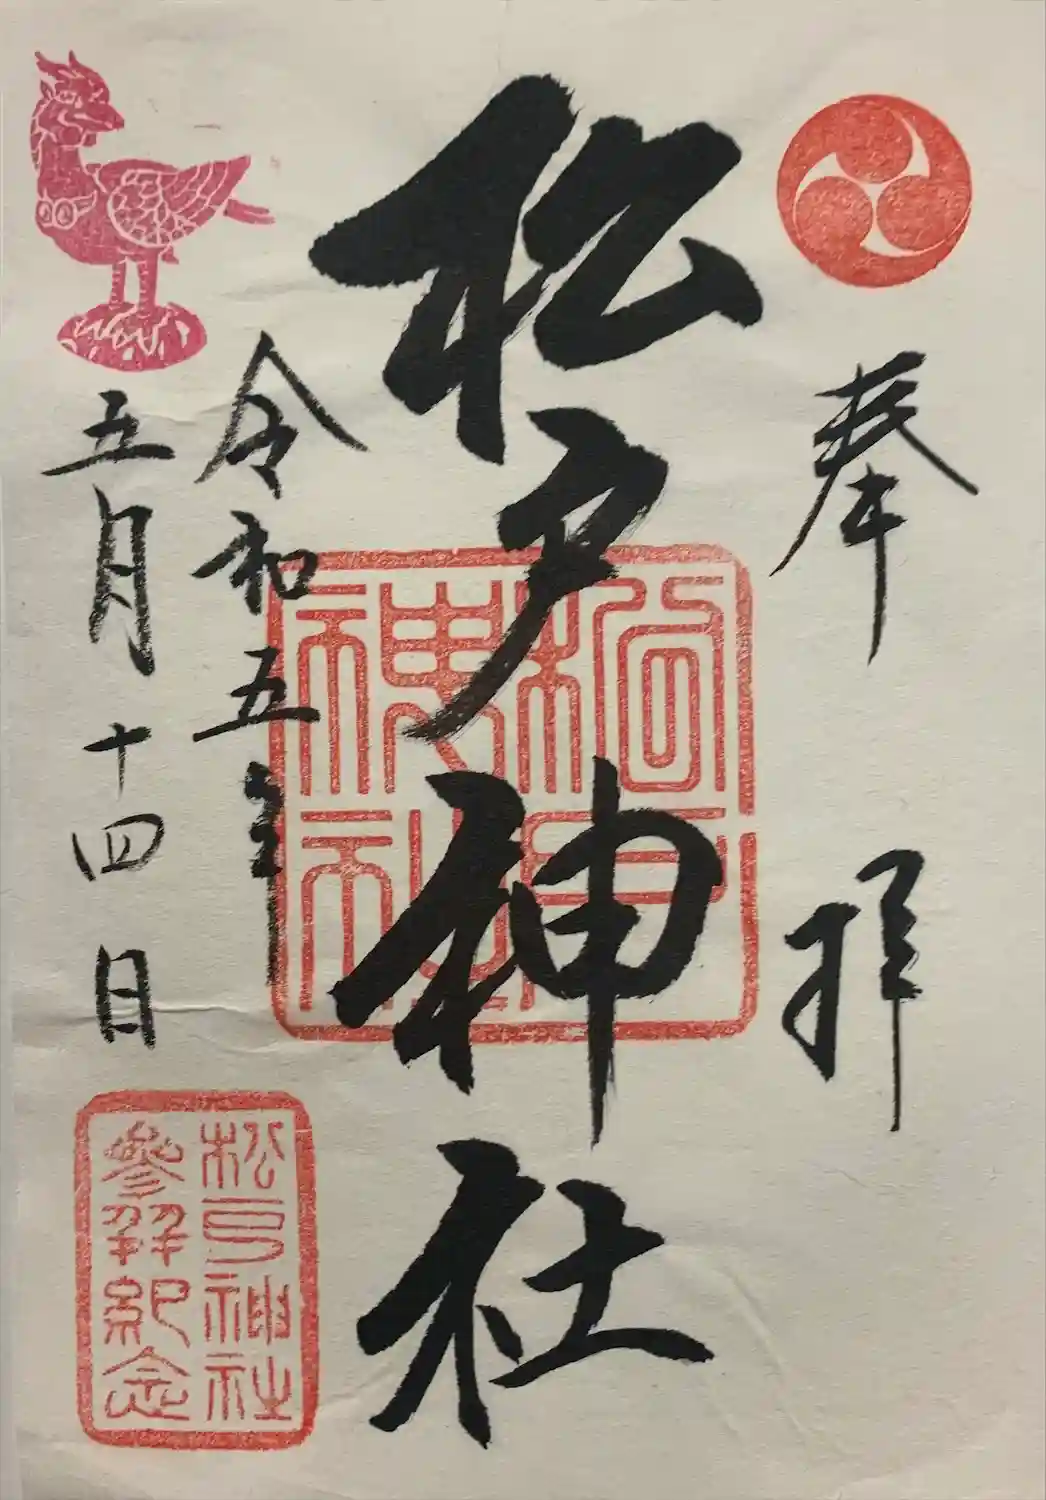 奉拝
松戸神社
松戸神社
令和五年
五月十四日
松戸神社
参拝紀念